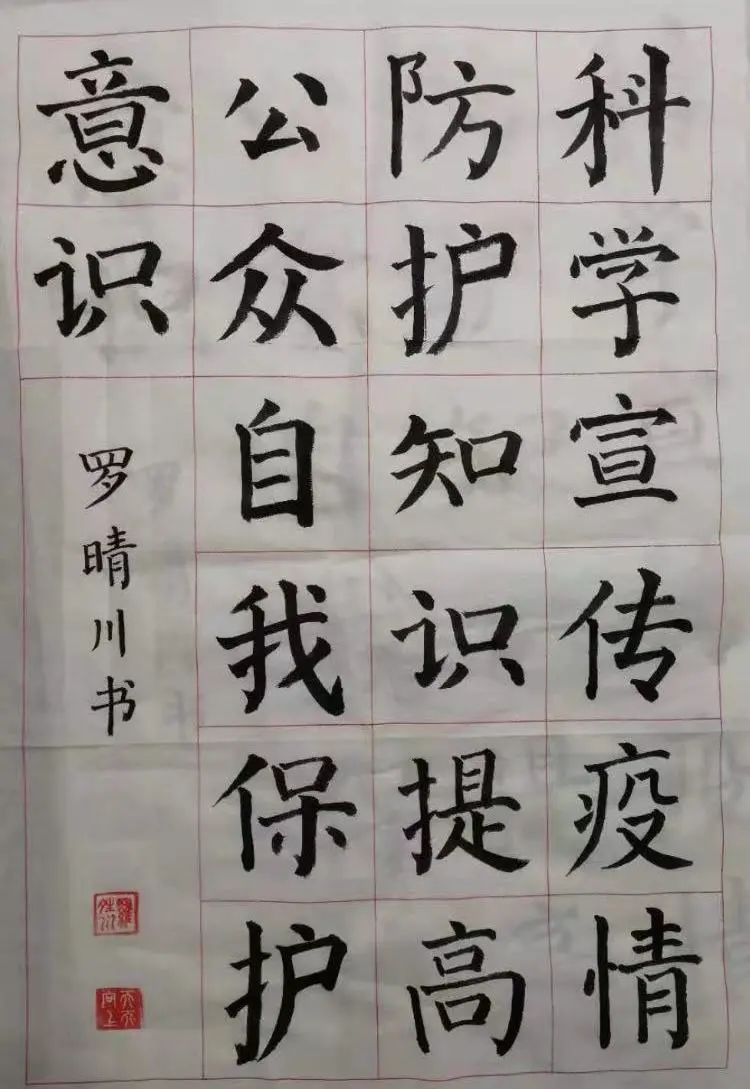 科学宣传疫情
防护知识提高
公众自我保护
意识
罗晴川书
天天向上